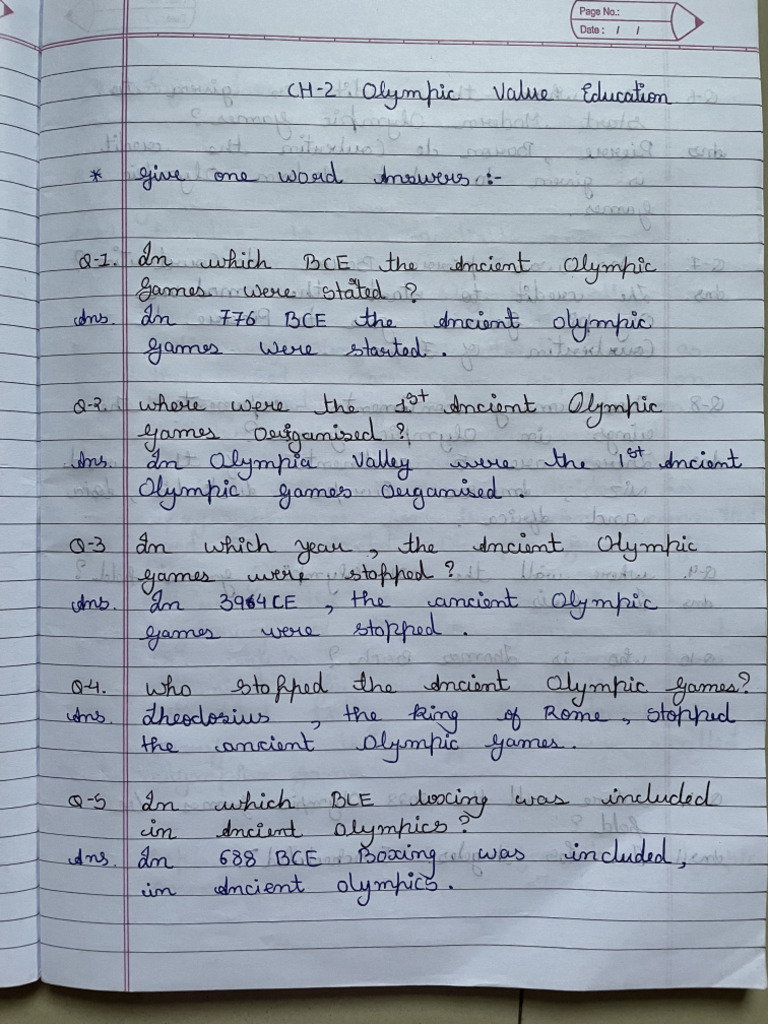 Page No.:
Date: / /
CH-2. Olympic Value Education
* Give one word Answers :-
Q-1. In which BCE the Ancient Olympic
Games were stated ?
Ans. In 776 BCE the Ancient Olympic
Games were started.
Q-2. where were the 1st Ancient Olympic
Games Organised ?
Ans. In Olympia Valley were the 1st Ancient
Olympic Games Organised.
Q-3 In which year, the Ancient Olympic
games were stopped ?
Ans. In 394 CE, the ancient Olympic
games were stopped.
Q-4. who stopped the Ancient Olympic Games?
Ans. Theodosius, the King of Rome, stopped
the ancient Olympic games.
Q-5 In which BCE boxing was included
in Ancient Olympics?
Ans. In 688 BCE Boxing was included,
in Ancient Olympics.